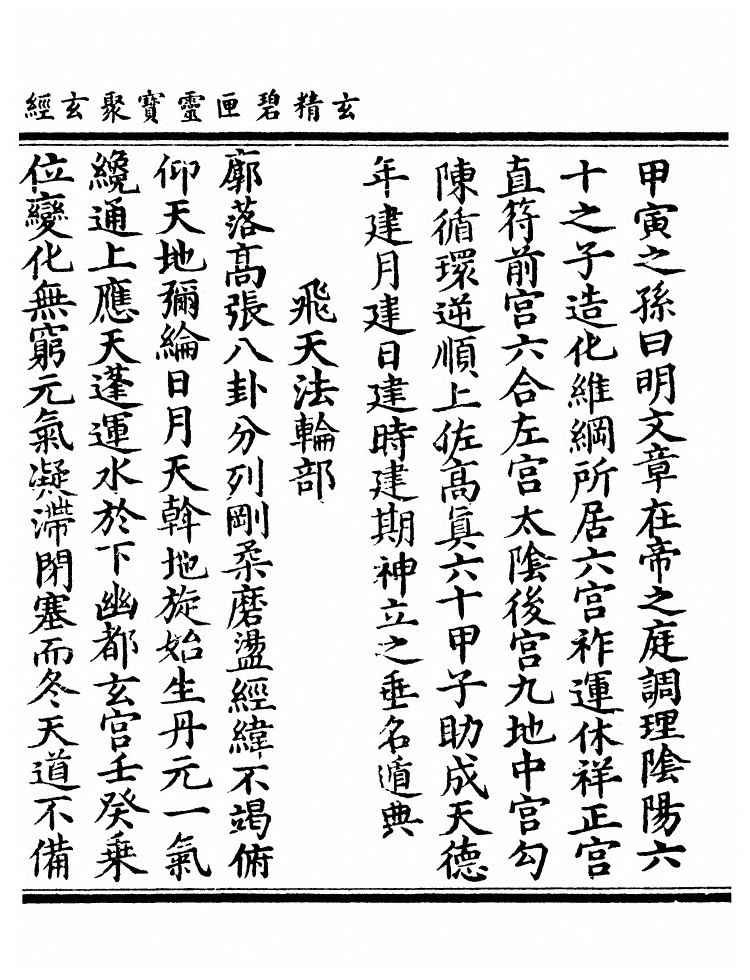 玄精碧匣靈寶聚玄經
甲寅之孫曰明文章在帝之庭調理陰陽六
十之子造化維綱所居六宮祚運休祥正宮
直符前宮六合左宮太陰後宮九地中宮勾
陳循環逆順上佐高眞六十甲子助成天德
年建月建日建時建期神立之垂名遁典
飛天法輪部
廓落高張八卦分列剛柔磨盪經緯不竭俯
仰天地彌綸日月天斡地旋始生丹元一氣
纔通上應天蓬運水於下幽都玄宮壬癸乗
位變化無窮元氣凝滯閉塞而冬天道不備